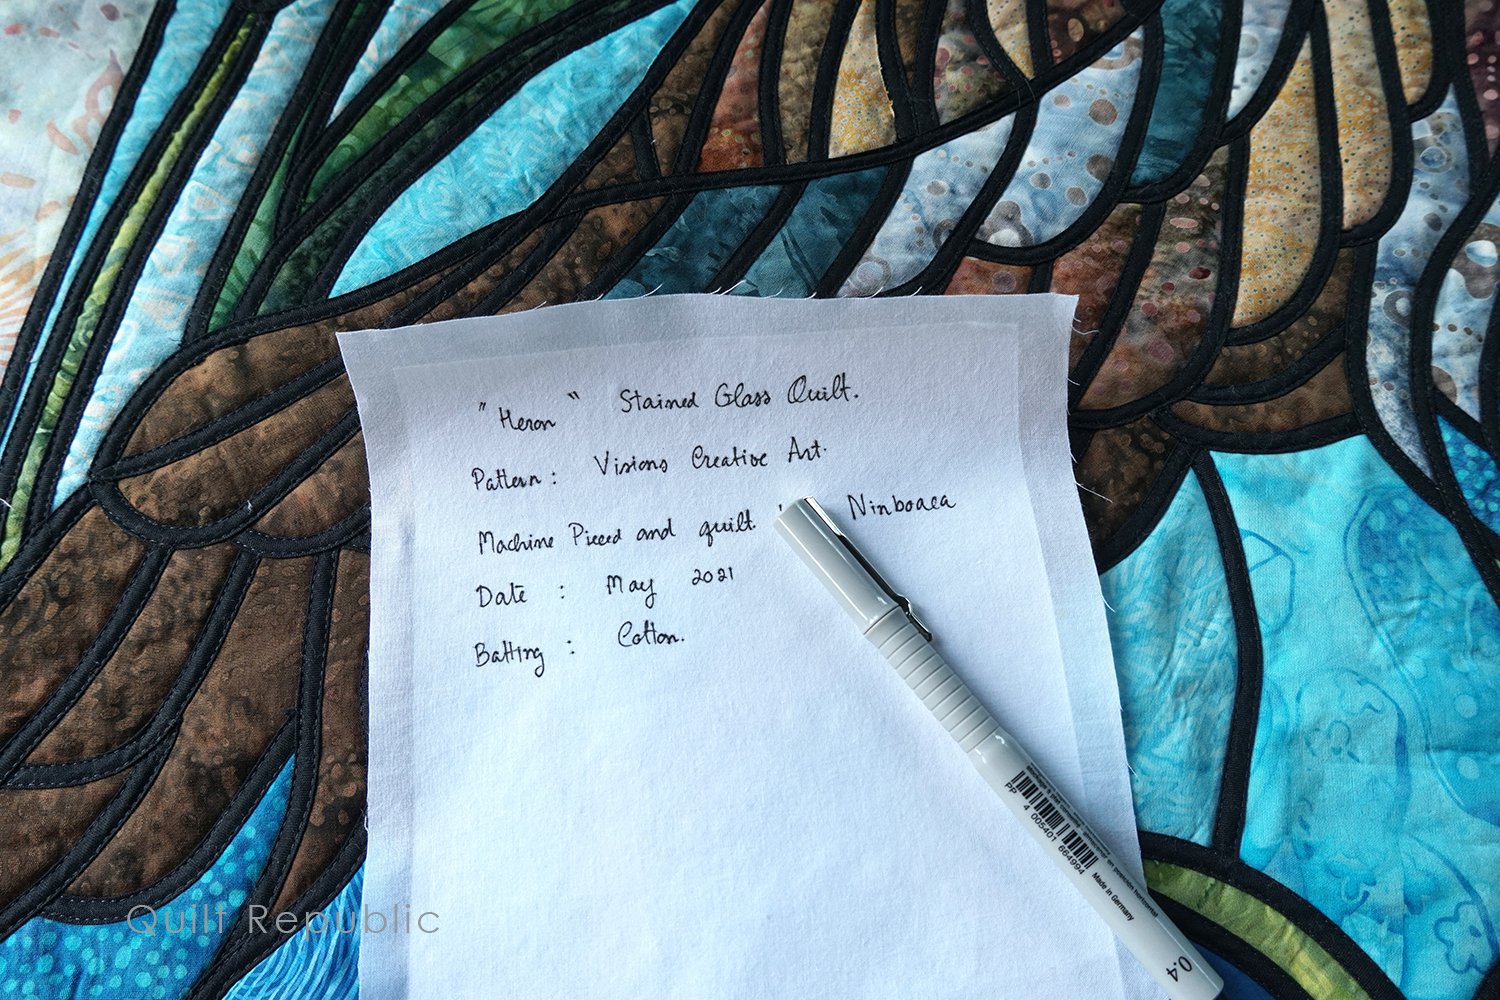 "Heron" Stained Glass Quilt.
Pattern: Visions Creative Art.
Machine Pieced and quilt Ninboaca
Date : May 2021
Batting : Cotton.
PP 4 005401 664994
Made in Germany
0.4
Quilt Republic